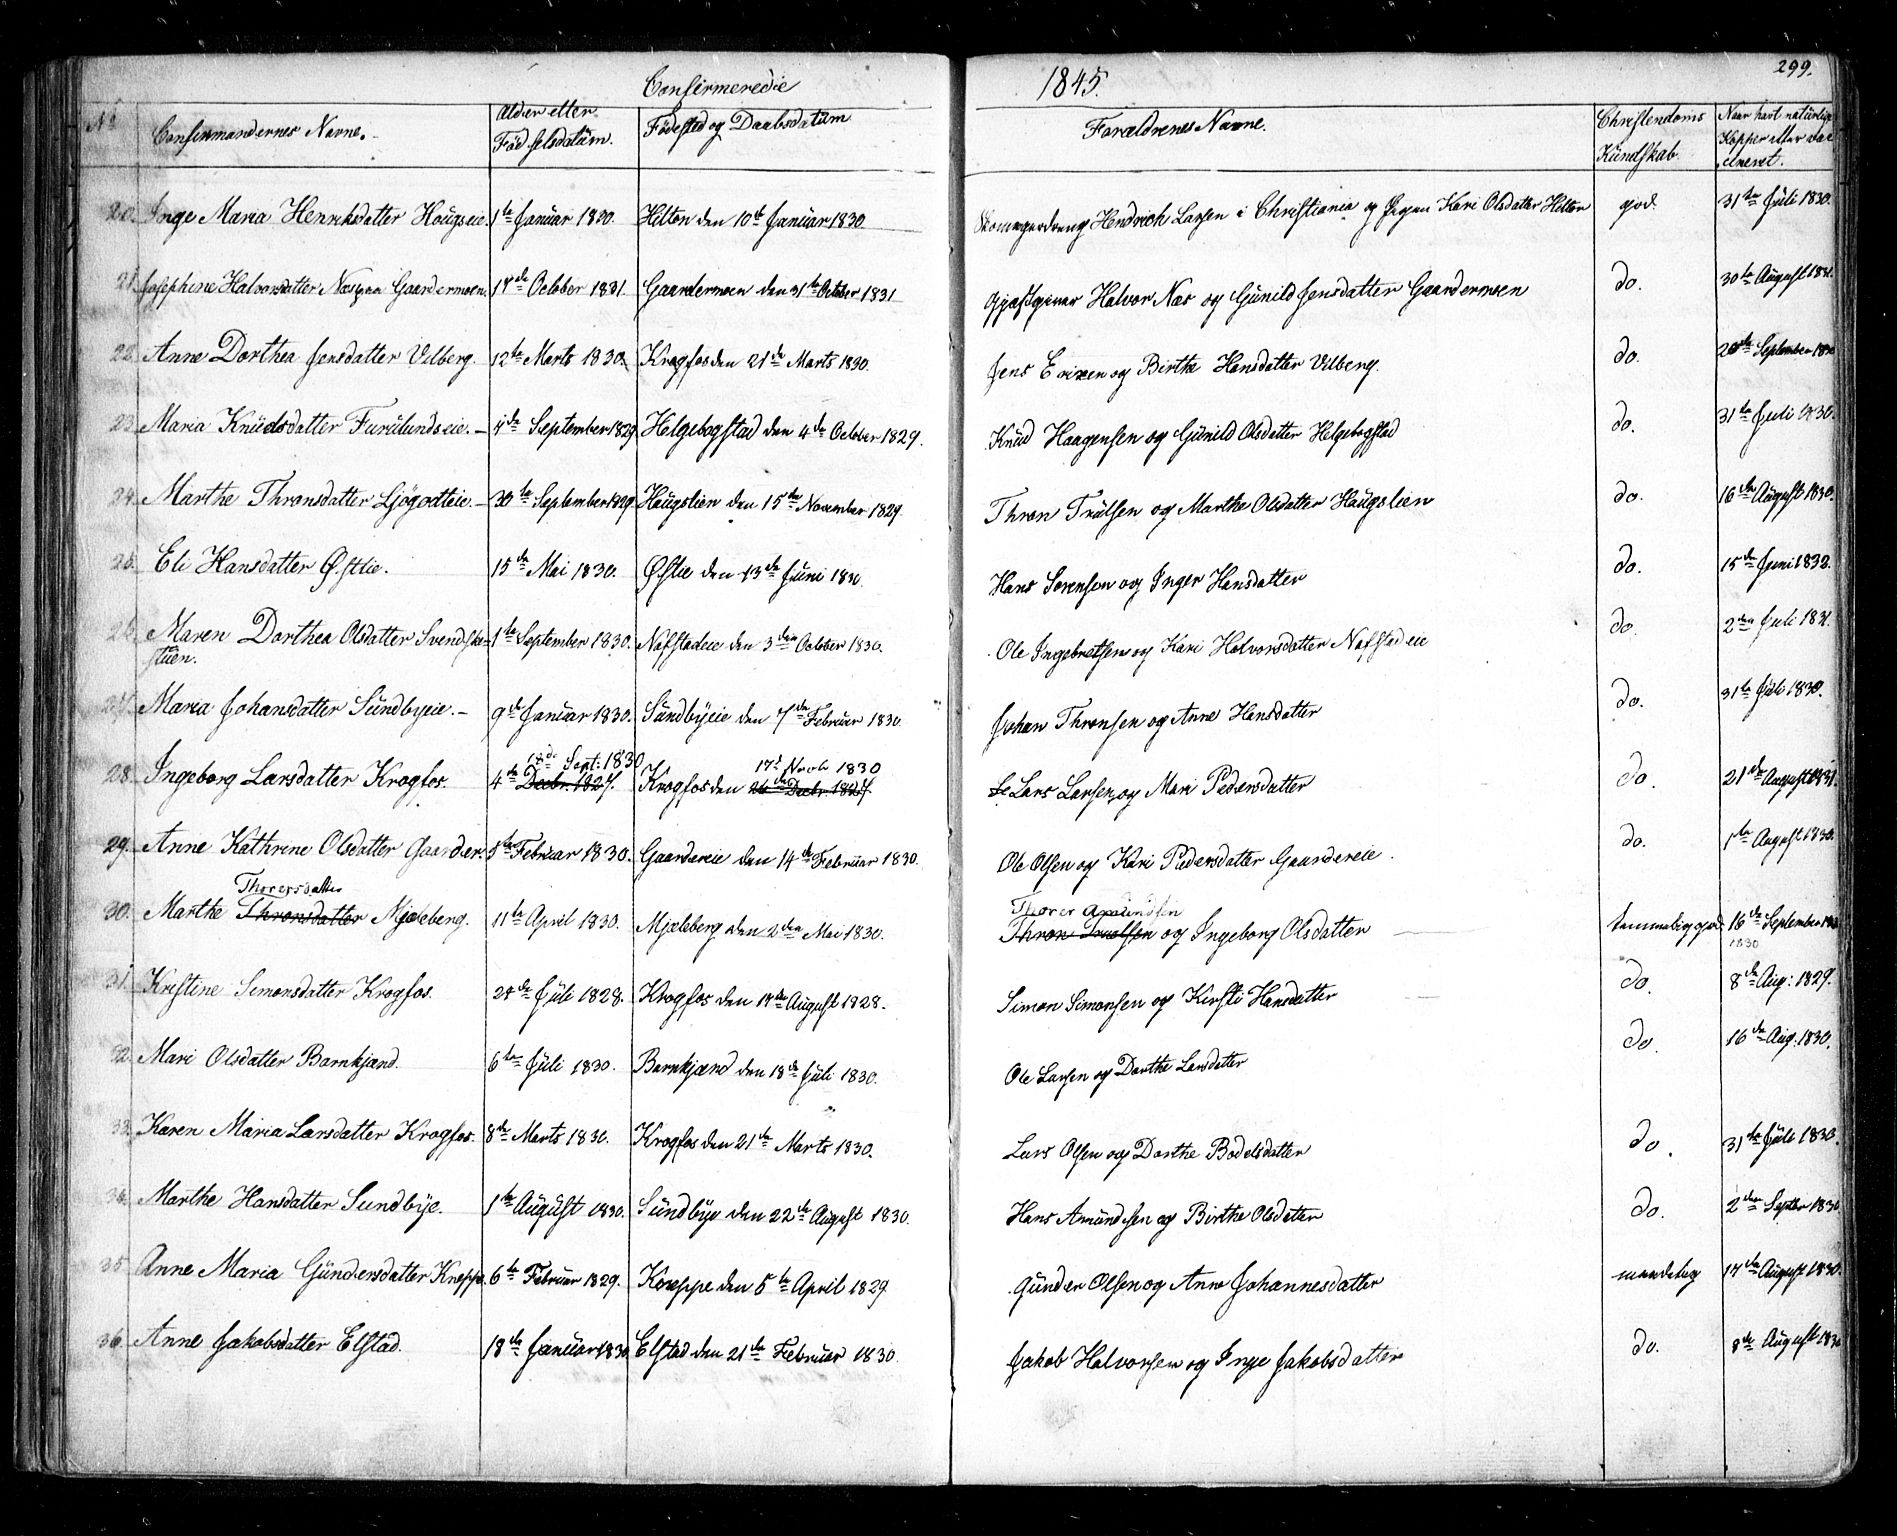 Confirmerede 1845. 299.
No Confirmandernes Navne. Alder eller Fødselsdatum. Fødested og Daabsdatum Forældrenes Navne. Christendoms Kundskab. Naar havt naturlige Kopper eller vaccineret.
20. Inge Maria Henriksdatter Haugseie. 1ste Januar 1830. Hilton den 10de Januar 1830. Hendrich Larsen i Christiania og Pigen Kari Olsdatter Hilton god. 31te Juli 1830.
21. Josephine Halvorsdatter Næs paa Gaardermoen. 17de October 1831. Gaardermoen den 31te October 1831 Gjæstgiver Halvor Næs og Gunild Jensdatter Gaardermoen do. 30te August 1831.
22. Anne Dorthea Jensdatter Vilberg. 12te Marts 1830. Krogfos den 21de Marts 1830. Jens Erixen og Birthe Hansdatter Vilberg. do. September
23. Maria Knudsdatter Furulundseie. September 1829 Helgebogstad den 4de October 1829. Knud Haagensen og Gunild Olsdatter Helgebogstad do. 31te Juli 1830.
24. Marthe Thronsdatter Ljøgodteie. 30te September 1829 Haugslien den 15de November 1829. Thron Trulsen og Marthe Olsdatter Haugslien do. 16de August 1830.
25. Eli Hansdatter Østlie. 15de Mai 1830. Østlie den 13de Juni 1830. Hans Sørensen og Inger Hansdatter do. 15de Juni 1832.
26. Maren Dorthea Olsdatter Svendske-
stuen. 1ste September 1830. Nafstadeie den 3den October 1830. Ole Ingebretsen og Kari Halvorsdatter Nafstadeie do. 2den Juli 1831.
27. Maria Johansdatter Sundbyeie. 9de Januar 1830. Sundbyeie den 7de Februar 1830. Johan Thronsen og Anne Hansdatter do. 31te Juli 1830.
18de Sept: 1830 17d Novb 1830
28. Ingeborg Larsdatter Krogfos. 4de Decbr. 1827. Krogfos den 26de Decbr. 1827. Lars Larsen og Mari Pedersdatter do. 21de August 1831.
29. Anne Kathrine Olsdatter Gaarder. 5te Februar 1830. Gaardereie den 14de Februar 1830. Ole Olsen og Kari Pedersdatter Gaardereie. do. 1ste August 1830.
Thorersdatter Thorer Amundsen
30. Marthe Thronsdatter Mjæleberg. 11te April 1830. Mjæleberg den 2den Mai 1830. Thron Truelsen og Ingeborg Olsdatter temmelig god. 16de September
1830
31. Kristine Simonsdatter Krogfos. 28de Juli 1828. Krogfos den 18de August 1828. Simon Simonsen og Kirsti Hansdatter do. 8de Aug: 1829.
32. Mari Olsdatter Barnkjærnd. 6te Juli 1830. Barnkjærnd den 18de Juli 1830. Ole Larsen og Dorthe Larsdatter do. 16de Aug. 1830.
33. Karen Maria Larsdatter Krogfos. 8de Marts 1830. Krogfos den 21de Marts 1830. Lars Olsen og Dorthe Bodelsdatter do. 31te Juli 1830.
34. Marthe Hansdatter Sundbye. 1ste August 1830. Sundbye den 22de August 1830. Hans Amundsen og Birthe Olsdatter do. 2den Septbr 1830.
35. Anne Maria Gundersdatter Kneppe. 6te Februar 1829. Kneppe den 5te April 1829 Gunder Olsen og Anne Johannesdatter maadelig 17de August 1830.
36. Anne Jakobsdatter Elstad. 18de Januar 1830 Elstad den 21de Februar 1830. Jakob Halvorsen og Inge Jakobsdatter do. 8de August 1830